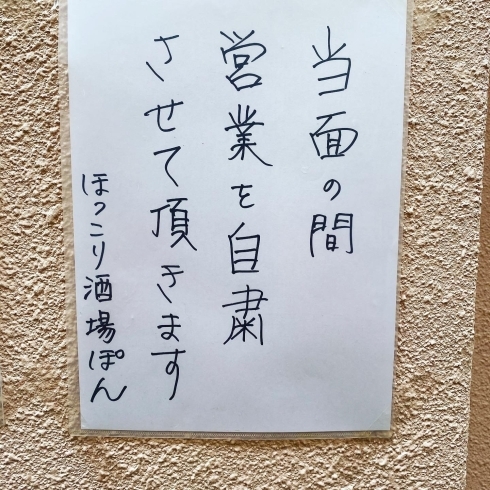 当面の間
営業を自粛
させて頂きます
ほっこり酒場ぽん